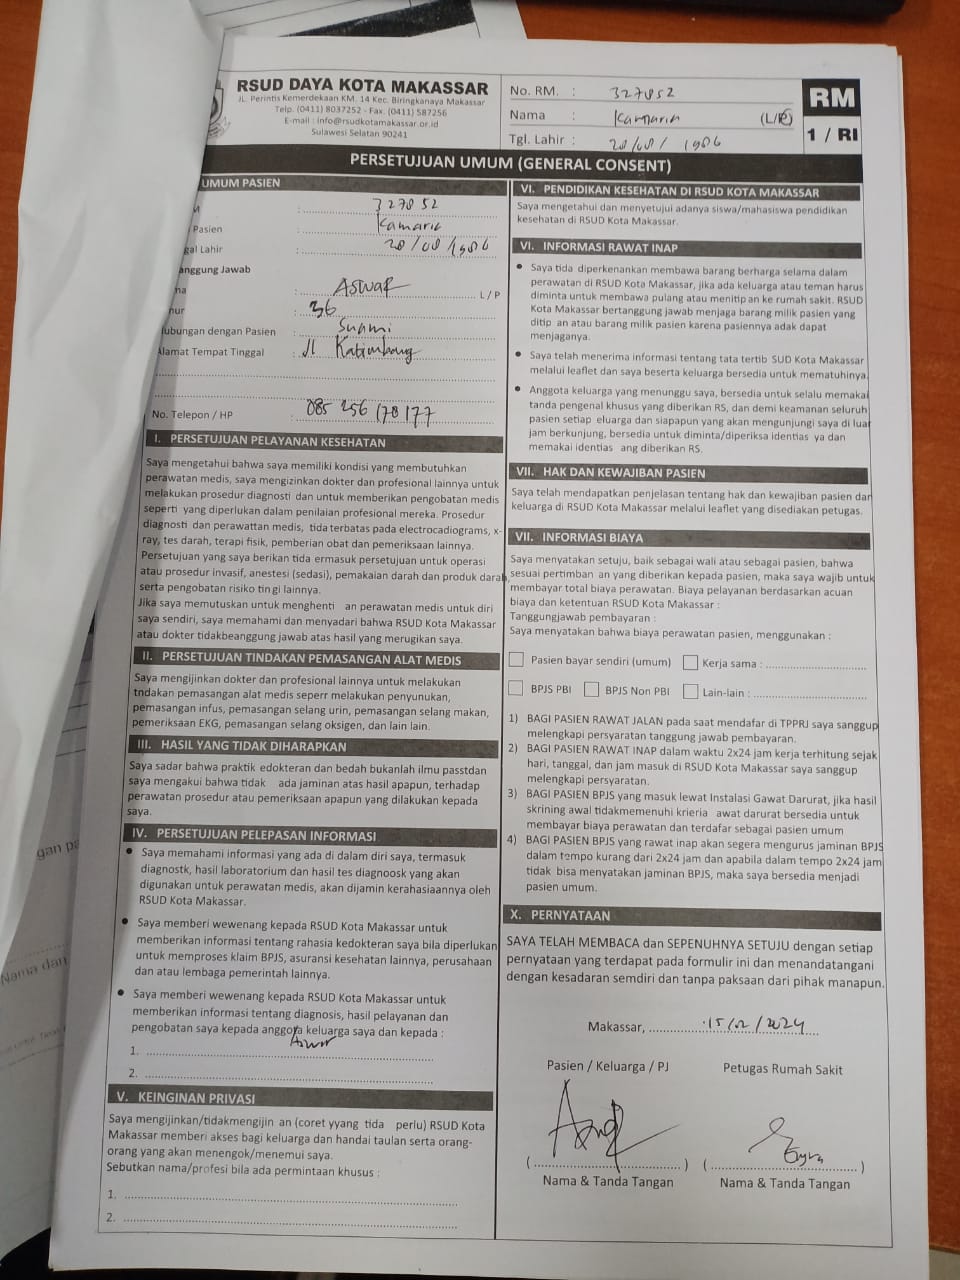 RSUD DAYA KOTA MAKASSAR
JL. Perintis Kemerdekaan KM. 14 Kec. Biringkanaya Makassar
Telp. (0411) 8037252 - Fax. (0411) 587256
E-mail : info@rsudkotamakassar.or.id
Sulawesi Selatan 90241
No. RM. : 327852
Nama : Kamaria (L/P)
Tgl. Lahir : 20/08/1986
RM
1 / RI
PERSETUJUAN UMUM (GENERAL CONSENT)
UMUM PASIEN
: 327852
Pasien : Kamaria
gal Lahir : 20/08/1986
anggung Jawab
na : Aswar L / P
nur : 36
ubungan dengan Pasien : Suami
Alamat Tempat Tinggal : Jl Katimbang
No. Telepon / HP : 085 256 178 177
I. PERSETUJUAN PELAYANAN KESEHATAN
Saya mengetahui bahwa saya memiliki kondisi yang membutuhkan
perawatan medis, saya mengizinkan dokter dan profesional lainnya untuk
melakukan prosedur diagnosti dan untuk memberikan pengobatan medis
seperti yang diperlukan dalam penilaian profesional mereka. Prosedur
diagnosti dan perawattan medis, tida terbatas pada electrocadiograms, x-
ray, tes darah, terapi fisik, pemberian obat dan pemeriksaan lainnya.
Persetujuan yang saya berikan tida ermasuk persetujuan untuk operasi
atau prosedur invasif, anestesi (sedasi), pemakaian darah dan produk darah,
serta pengobatan risiko tin gi lainnya.
Jika saya memutuskan untuk menghenti an perawatan medis untuk diri
saya sendiri, saya memahami dan menyadari bahwa RSUD Kota Makassar
atau dokter tidakbeanggung jawab atas hasil yang merugikan saya.
II. PERSETUJUAN TINDAKAN PEMASANGAN ALAT MEDIS
Saya mengijinkan dokter dan profesional lainnya untuk melakukan
tndakan pemasangan alat medis seperr melakukan penyunukan,
pemasangan infus, pemasangan selang urin, pemasangan selang makan,
pemeriksaan EKG, pemasangan selang oksigen, dan lain lain.
III. HASIL YANG TIDAK DIHARAPKAN
Saya sadar bahwa praktik edokteran dan bedah bukanlah ilmu passtdan
saya mengakui bahwa tidak ada jaminan atas hasil apapun, terhadap
perawatan prosedur atau pemeriksaan apapun yang dilakukan kepada
saya.
IV. PERSETUJUAN PELEPASAN INFORMASI
• Saya memahami informasi yang ada di dalam diri saya, termasuk
diagnostk, hasil laboratorium dan hasil tes diagnoosk yang akan
digunakan untuk perawatan medis, akan dijamin kerahasiaannya oleh
RSUD Kota Makassar.
• Saya memberi wewenang kepada RSUD Kota Makassar untuk
memberikan informasi tentang rahasia kedokteran saya bila diperlukan
untuk memproses klaim BPJS, asuransi kesehatan lainnya, perusahaan
dan atau lembaga pemerintah lainnya.
• Saya memberi wewenang kepada RSUD Kota Makassar untuk
memberikan informasi tentang diagnosis, hasil pelayanan dan
pengobatan saya kepada anggota keluarga saya dan kepada :
1. Aswar
2.
V. KEINGINAN PRIVASI
Saya mengijinkan/tidakmengijin an (coret yyang tida perlu) RSUD Kota
Makassar memberi akses bagi keluarga dan handai taulan serta orang-
orang yang akan menengok/menemui saya.
Sebutkan nama/profesi bila ada permintaan khusus :
1.
2.
VI. PENDIDIKAN KESEHATAN DI RSUD KOTA MAKASSAR
Saya mengetahui dan menyetujui adanya siswa/mahasiswa pendidikan
kesehatan di RSUD Kota Makassar.
VI. INFORMASI RAWAT INAP
• Saya tida diperkenankan membawa barang berharga selama dalam
perawatan di RSUD Kota Makassar, jika ada keluarga atau teman harus
diminta untuk membawa pulang atau menitip an ke rumah sakit. RSUD
Kota Makassar bertanggung jawab menjaga barang milik pasien yang
ditip an atau barang milik pasien karena pasiennya adak dapat
menjaganya.
• Saya telah menerima informasi tentang tata tertib SUD Kota Makassar
melalui leaflet dan saya beserta keluarga bersedia untuk mematuhinya.
• Anggota keluarga yang menunggu saya, bersedia untuk selalu memakai
tanda pengenal khusus yang diberikan RS, dan demi keamanan seluruh
pasien setiap eluarga dan siapapun yang akan mengunjungi saya di luar
jam berkunjung, bersedia untuk diminta/diperiksa identias ya dan
memakai identias ang diberikan RS.
VII. HAK DAN KEWAJIBAN PASIEN
Saya telah mendapatkan penjelasan tentang hak dan kewajiban pasien dan
keluarga di RSUD Kota Makassar melalui leaflet yang disediakan petugas.
VII. INFORMASI BIAYA
Saya menyatakan setuju, baik sebagai wali atau sebagai pasien, bahwa
sesuai pertimban an yang diberikan kepada pasien, maka saya wajib untuk
membayar total biaya perawatan. Biaya pelayanan berdasarkan acuan
biaya dan ketentuan RSUD Kota Makassar :
Tanggungjawab pembayaran :
Saya menyatakan bahwa biaya perawatan pasien, menggunakan :
Pasien bayar sendiri (umum) Kerja sama :
BPJS PBI BPJS Non PBI Lain-lain :
1) BAGI PASIEN RAWAT JALAN pada saat mendafar di TPPRJ saya sanggup
melengkapi persyaratan tanggung jawab pembayaran.
2) BAGI PASIEN RAWAT INAP dalam waktu 2x24 jam kerja terhitung sejak
hari, tanggal, dan jam masuk di RSUD Kota Makassar saya sanggup
melengkapi persyaratan.
3) BAGI PASIEN BPJS yang masuk lewat Instalasi Gawat Darurat, jika hasil
skrining awal tidakmemenuhi krieria awat darurat bersedia untuk
membayar biaya perawatan dan terdafar sebagai pasien umum
4) BAGI PASIEN BPJS yang rawat inap akan segera mengurus jaminan BPJS
dalam tempo kurang dari 2x24 jam dan apabila dalam tempo 2x24 jam
tidak bisa menyatakan jaminan BPJS, maka saya bersedia menjadi
pasien umum.
X. PERNYATAAN
SAYA TELAH MEMBACA dan SEPENUHNYA SETUJU dengan setiap
pernyataan yang terdapat pada formulir ini dan menandatangani
dengan kesadaran semdiri dan tanpa paksaan dari pihak manapun.
Makassar, 15/02/2024
Pasien / Keluarga / PJ Petugas Rumah Sakit
Nama & Tanda Tangan Nama & Tanda Tangan
gan pa
Nama dan